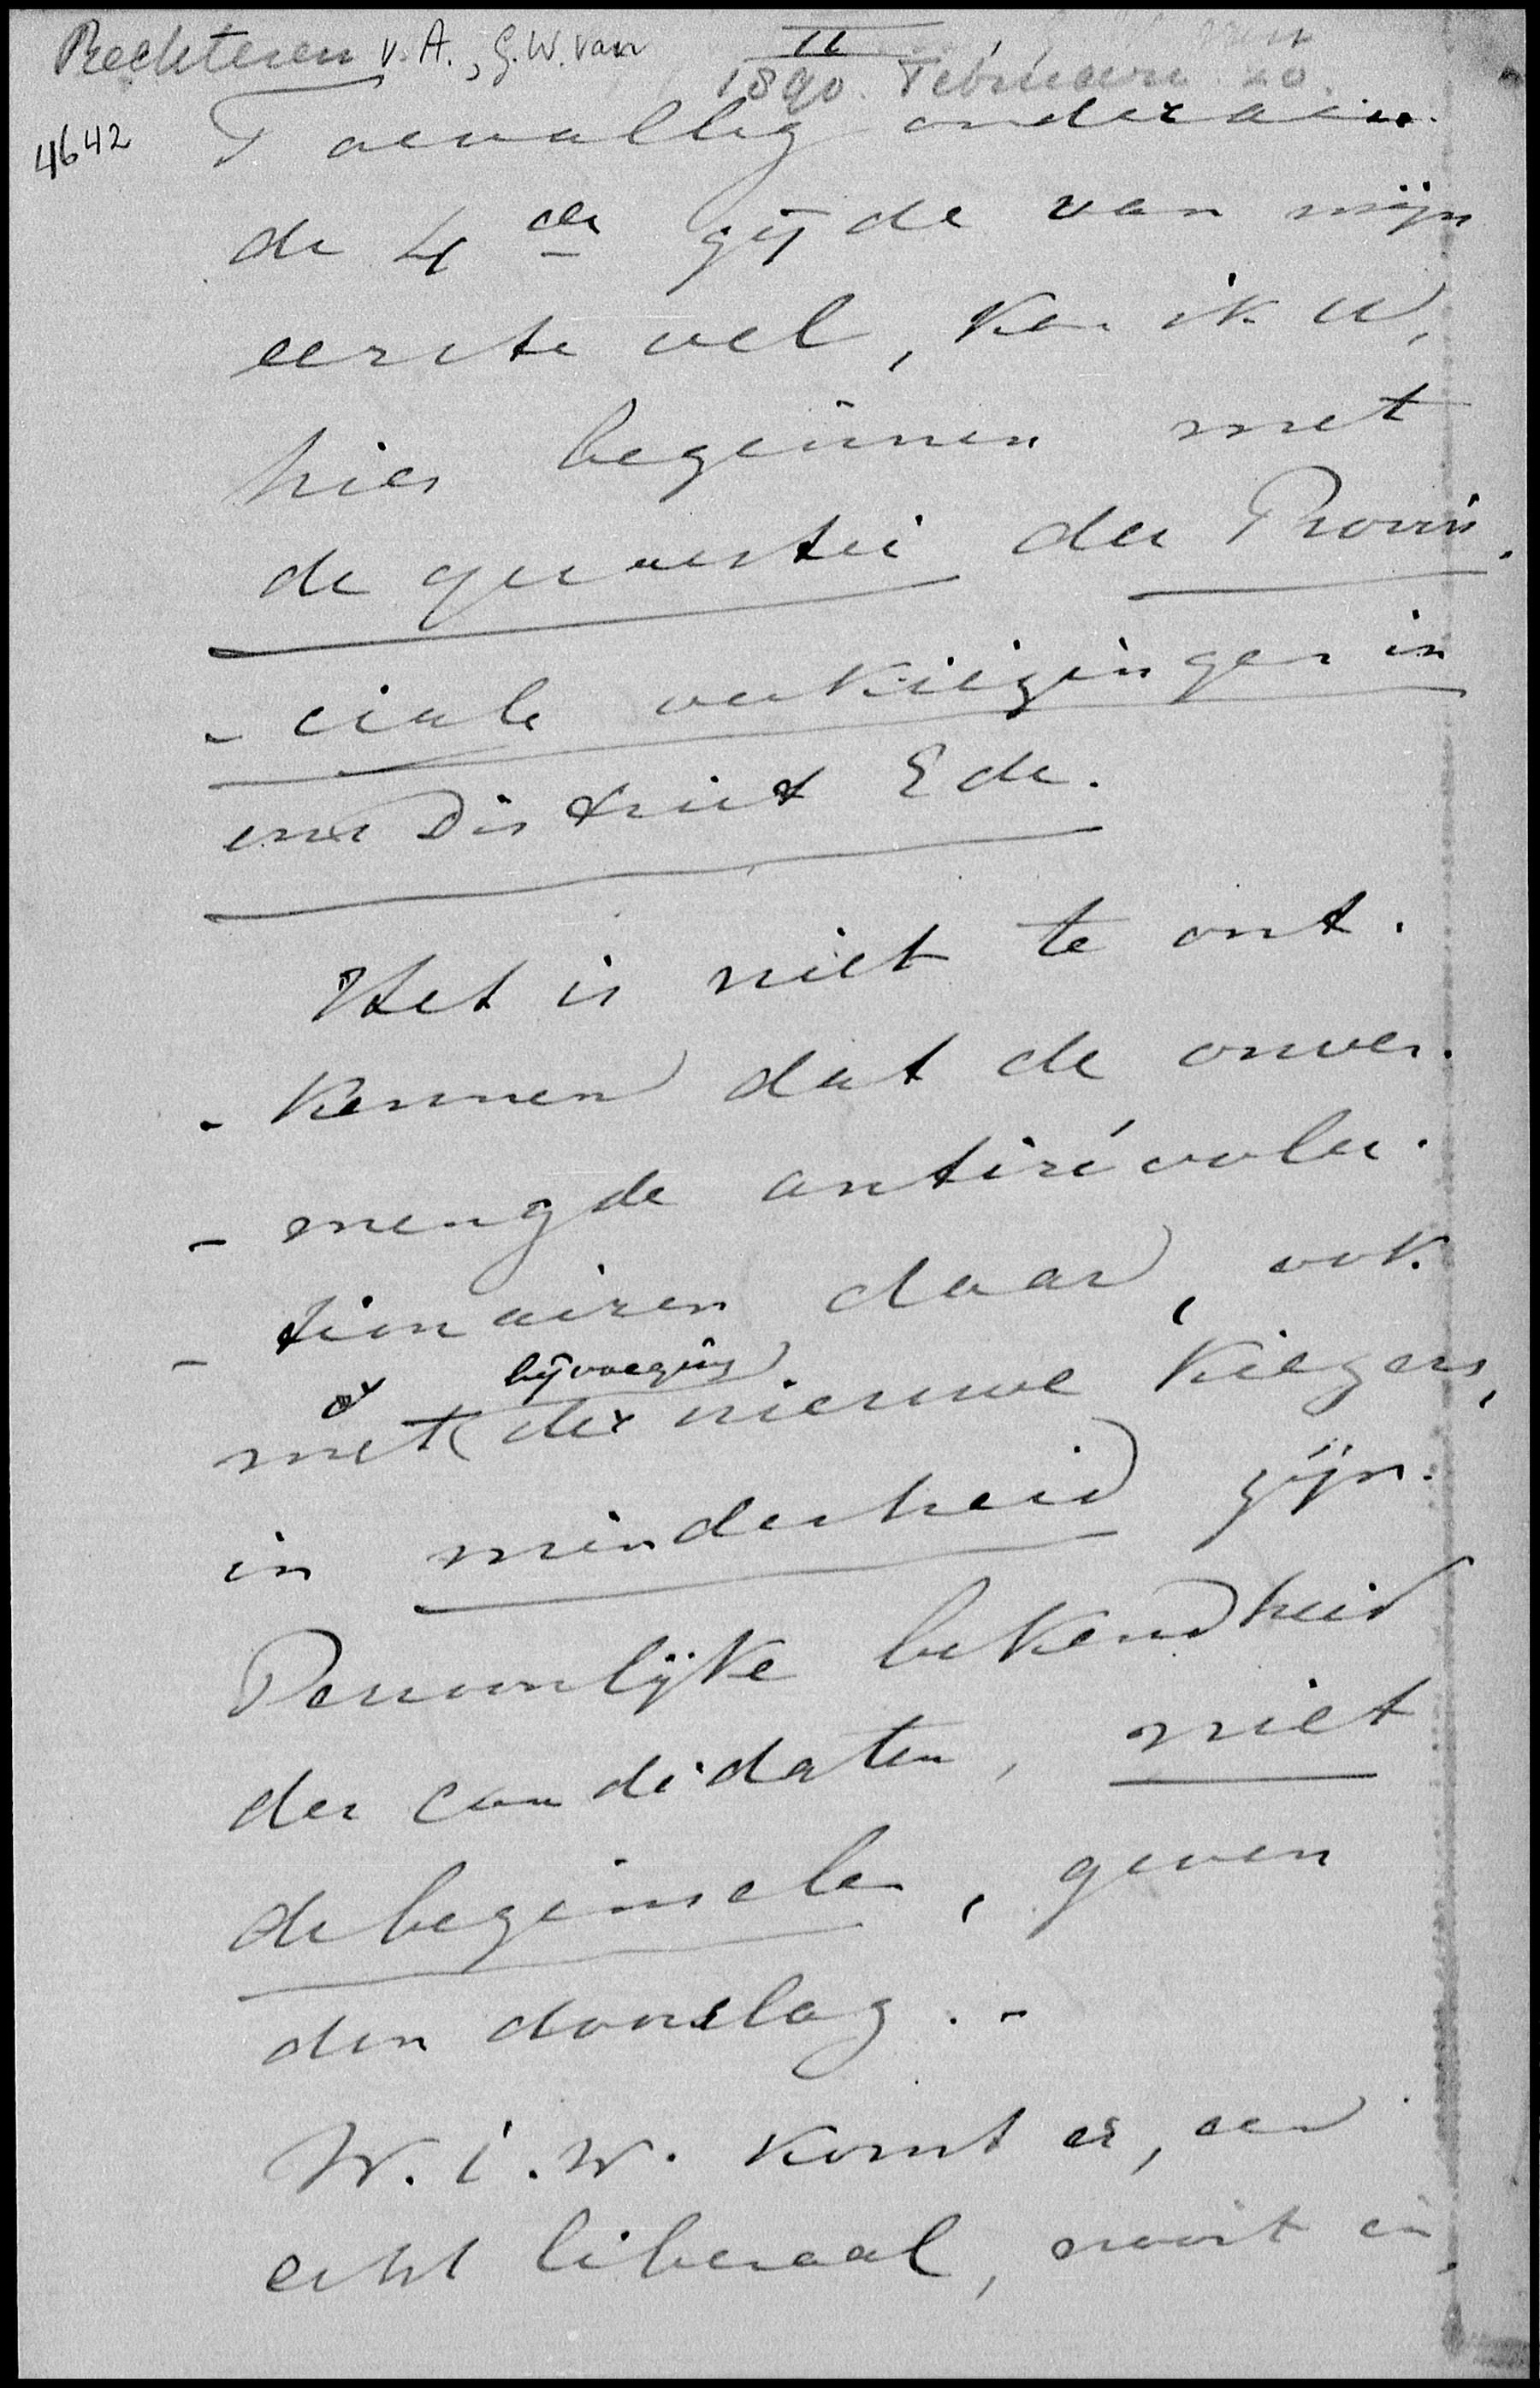 Rechteren v. A., G. W. van
II
1890. Februari 20.
4642
Toevallig onderaan
de 4de zijde van mijn
eerste vel, kan ik u,
hier beginnen met
de quaestie der Provin.
- ciale verkiezingen in
District Ede.
Het is niet te ont.
- kennen dat de onver.
- mengde antirévolu.
- tionairen daar, ook
bijvoeging
met der nieuwe kiezers,
in minderheid zijn.
Persoonlijke bekendheid
der candidaten, niet
de beginselen, geven
den doorslag. -
W. i. W. komt er, een
echt liberaal, nooit in,